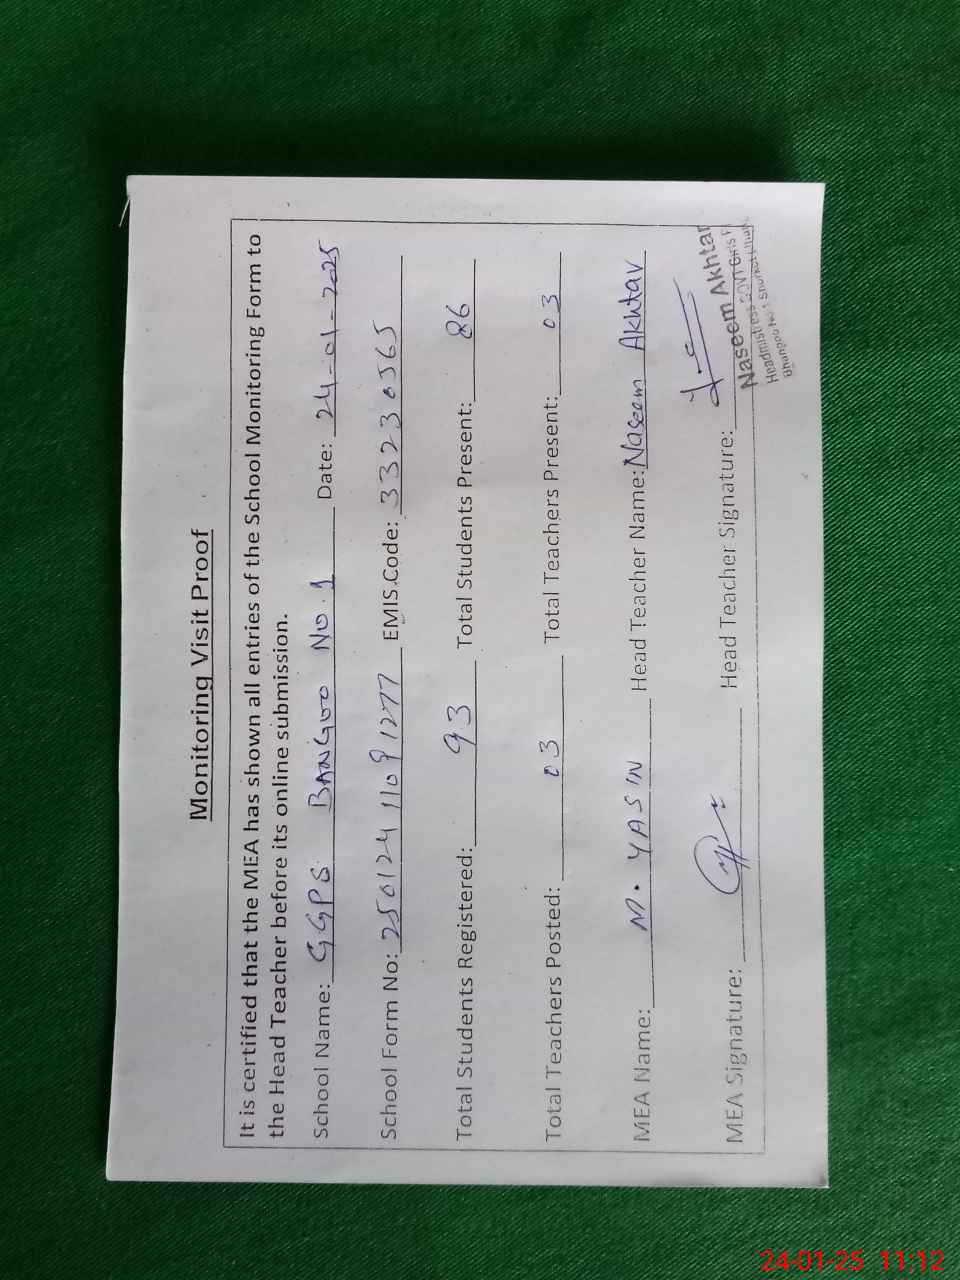 Monitoring Visit Proof
It is certified that the MEA has shown all entries of the School Monitoring Form to
the Head Teacher before its online submission.
School Name: GGPS BANGOO NO.1 Date: 24-01-2025
School Form No: 25012411091277 EMIS.Code: 33230365
Total Students Registered: 93 Total Students Present: 86
Total Teachers Posted: 03 Total Teachers Present: 03
MEA Name: M. YASIN Head Teacher Name: Naseem Akhtar
MEA Signature: Head Teacher Signature:
Naseem Akhtar
Headmistress Govt Girls
Bhangoo No.1
24-01-25 11:12